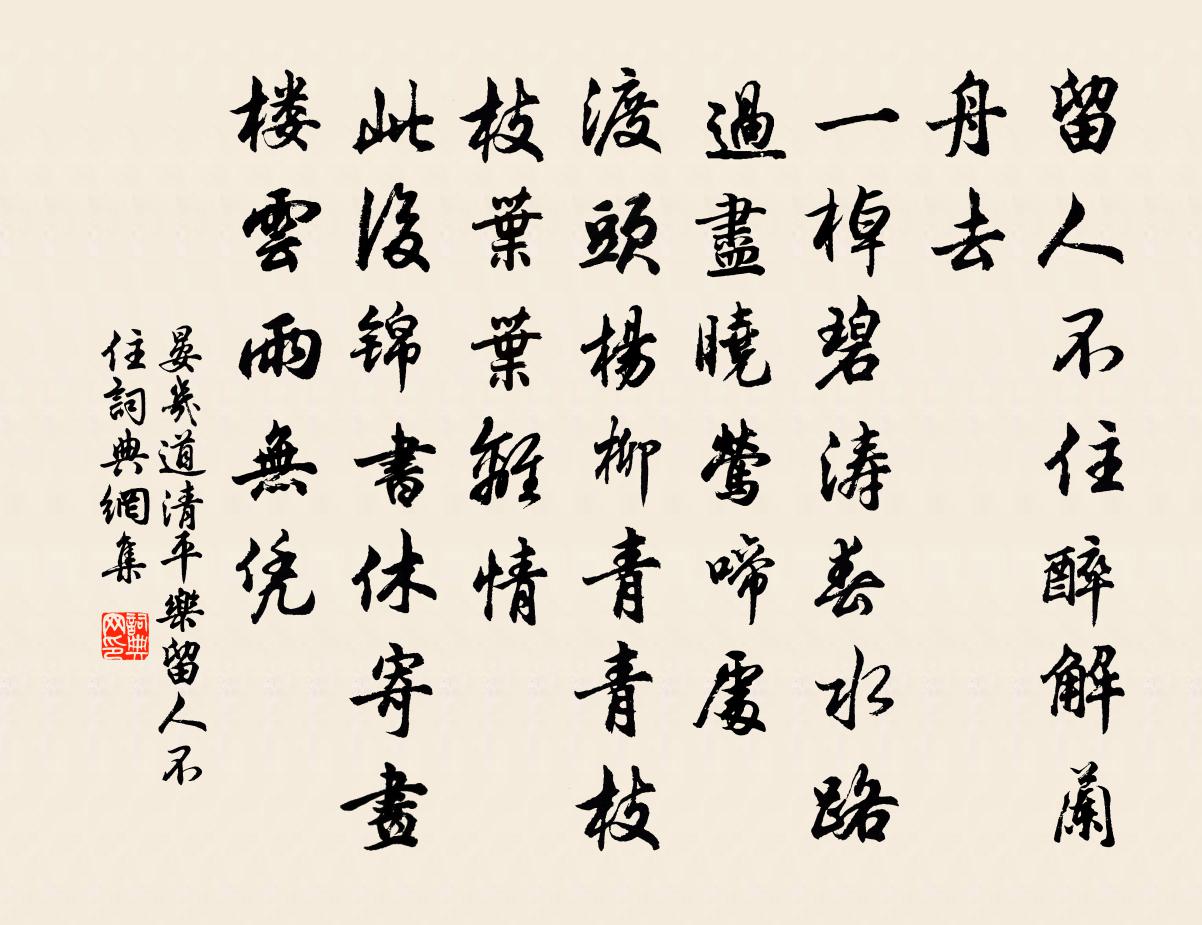 留人不住醉解蘭
舟去
一棹碧濤春水路
過盡曉鶯啼處
渡頭楊柳青青枝
枝葉葉離情
此後锦書休寄畫
楼雲雨無凭
晏幾道清平樂留人不
住詞典網集
詞典网印